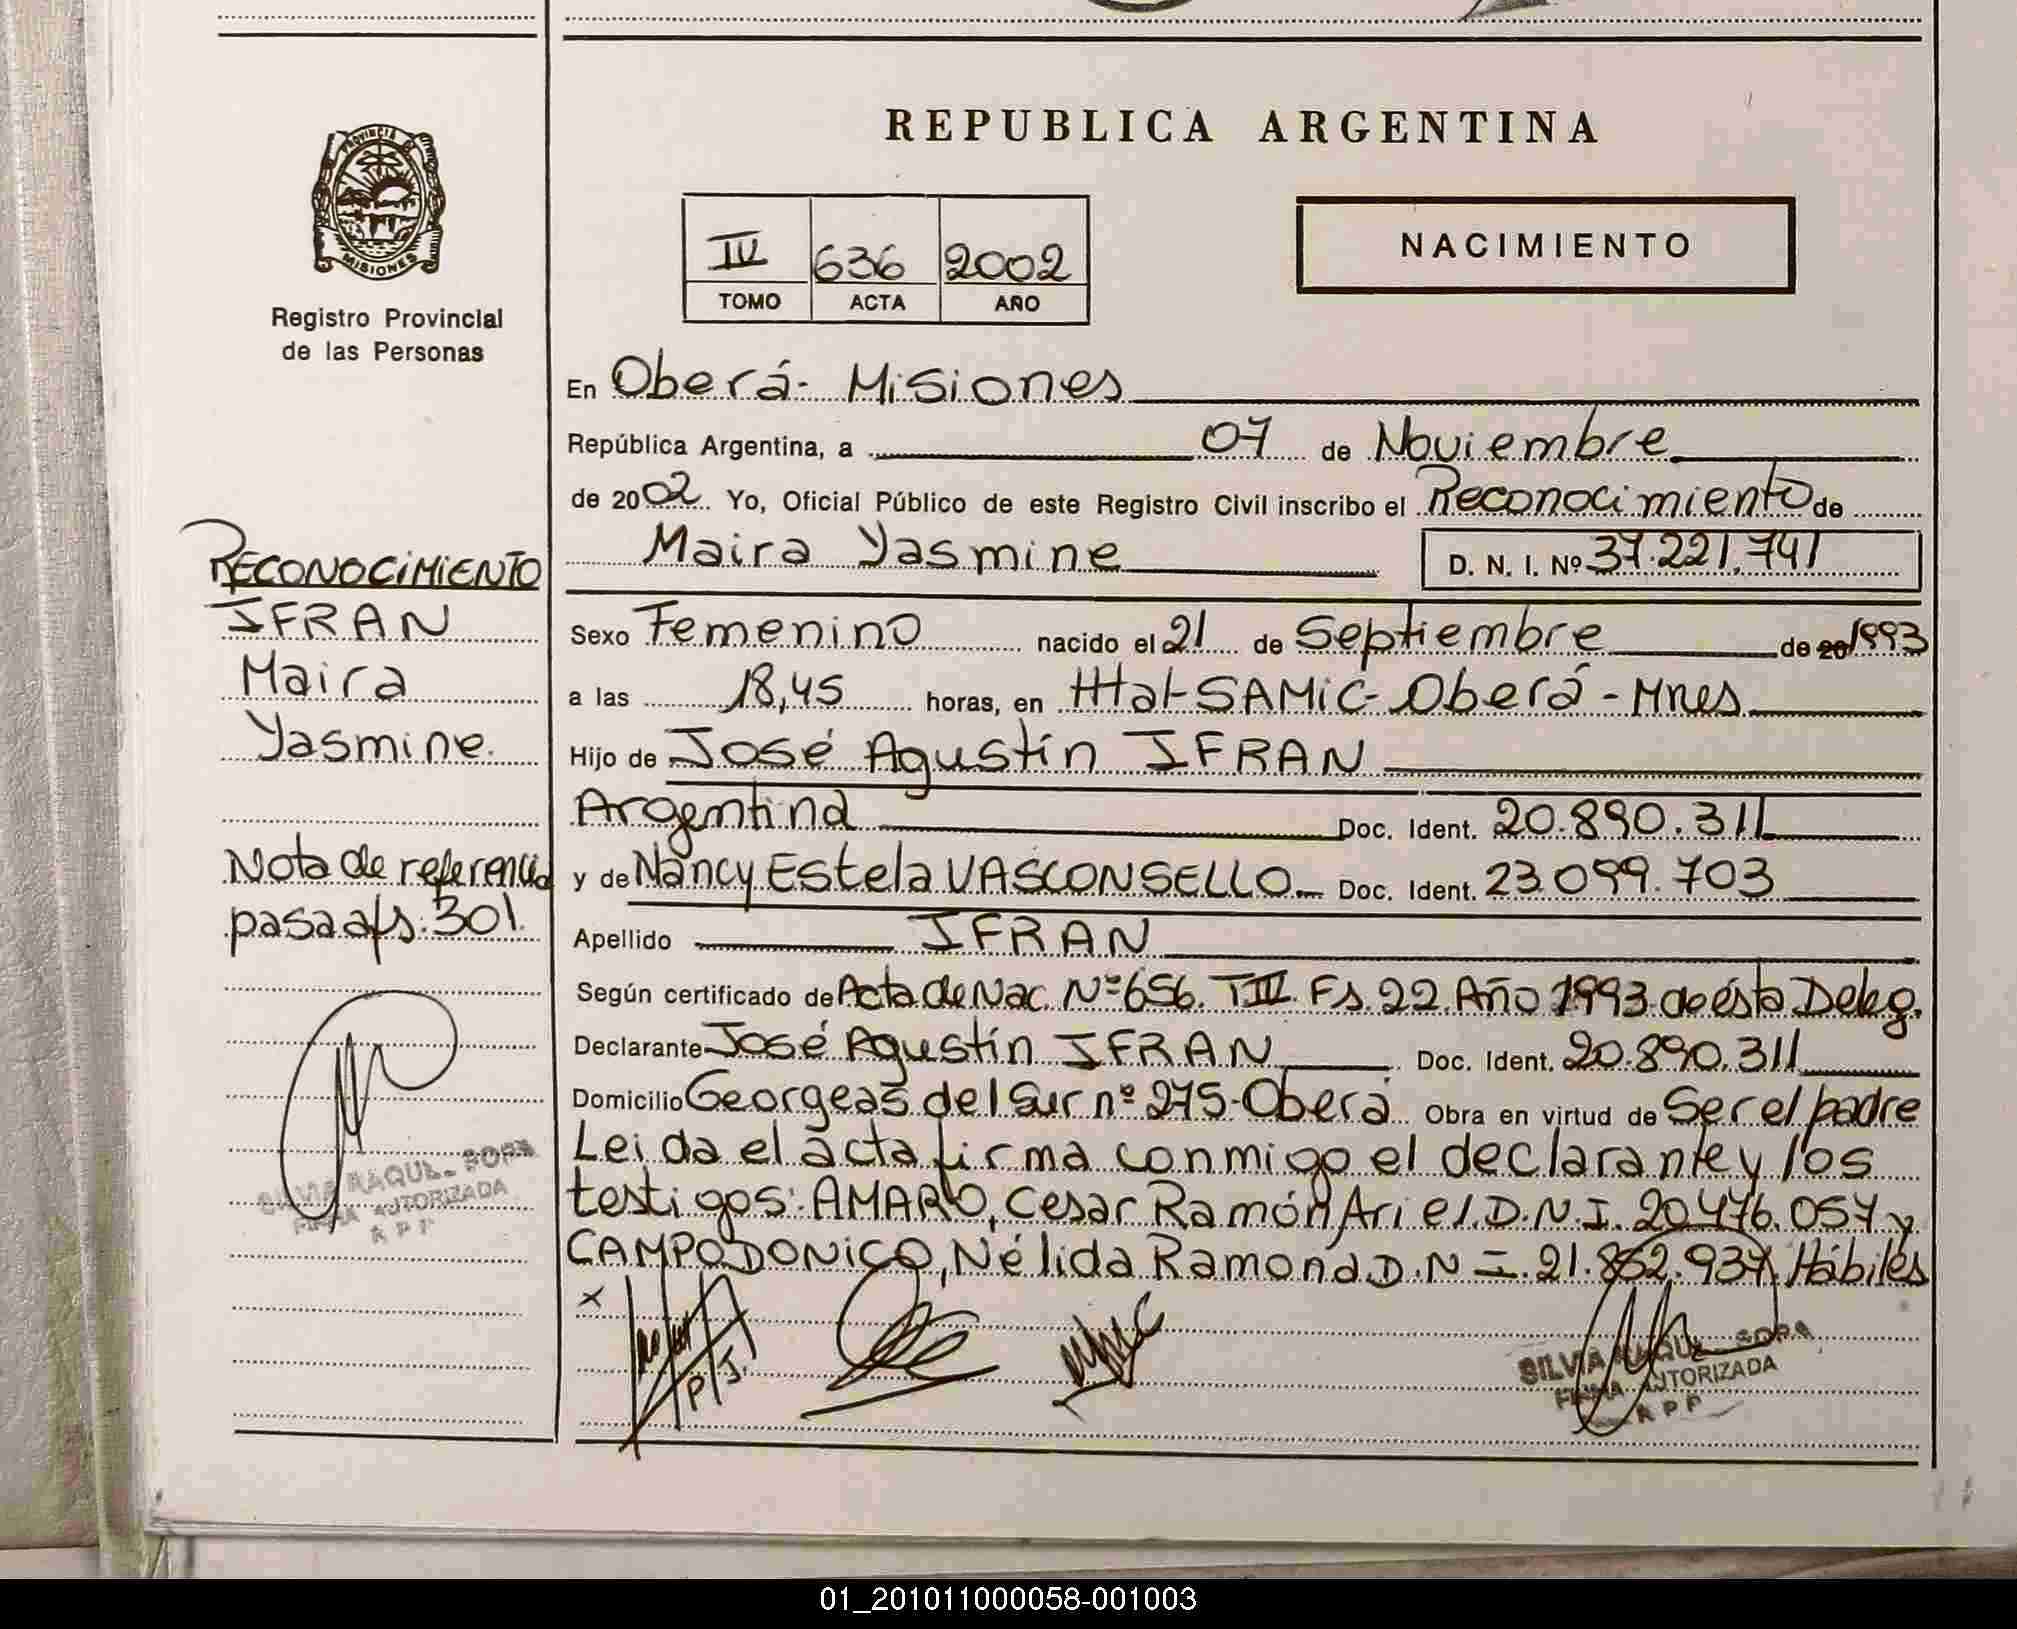 REPUBLICA ARGENTINA
PROVINCIA DE
MISIONES
Registro Provincial
de las Personas
IV 636 2002
TOMO ACTA AÑO
NACIMIENTO
En Oberá - Misiones
República Argentina, a 07 de Noviembre
de 2002. Yo, Oficial Público de este Registro Civil inscribo el Reconocimiento de
Maira Yasmine D. N. I. Nº 37.221.741
Sexo Femenino nacido el 21 de Septiembre de 20 1993
a las 18,45 horas, en Htal SAMIC - Oberá - Mnes
Hijo de José Agustín IFRAN
Argentina Doc. Ident. 20.890.311
y de Nancy Estela VASCONSELLO Doc. Ident. 23.099.703
Apellido IFRAN
Según certificado de Acta de Nac. Nº 656. T III. Fs. 22. Año 1993 de ésta Deleg.
Declarante José Agustín IFRAN Doc. Ident. 20.890.311
Domicilio Georgeas del Sur nº 275 - Oberá Obra en virtud de Ser el padre
Leida el acta firma conmigo el declarante y los
testigos: AMARO, Cesar Ramón Ariel D.N.I. 20.476.057 y
CAMPODONICO, Nélida Ramona D.N.I. 21.852.937. Hábiles
x
P J.
SILVIA RAQUEL SOPA
FIRMA AUTORIZADA
R P P
RECONOCIMIENTO
IFRAN
Maira
Yasmine.
Nota de referencia
pasa a fs. 301.
SILVIA RAQUEL SOPA
FIRMA AUTORIZADA
R P P
01_201011000058-001003